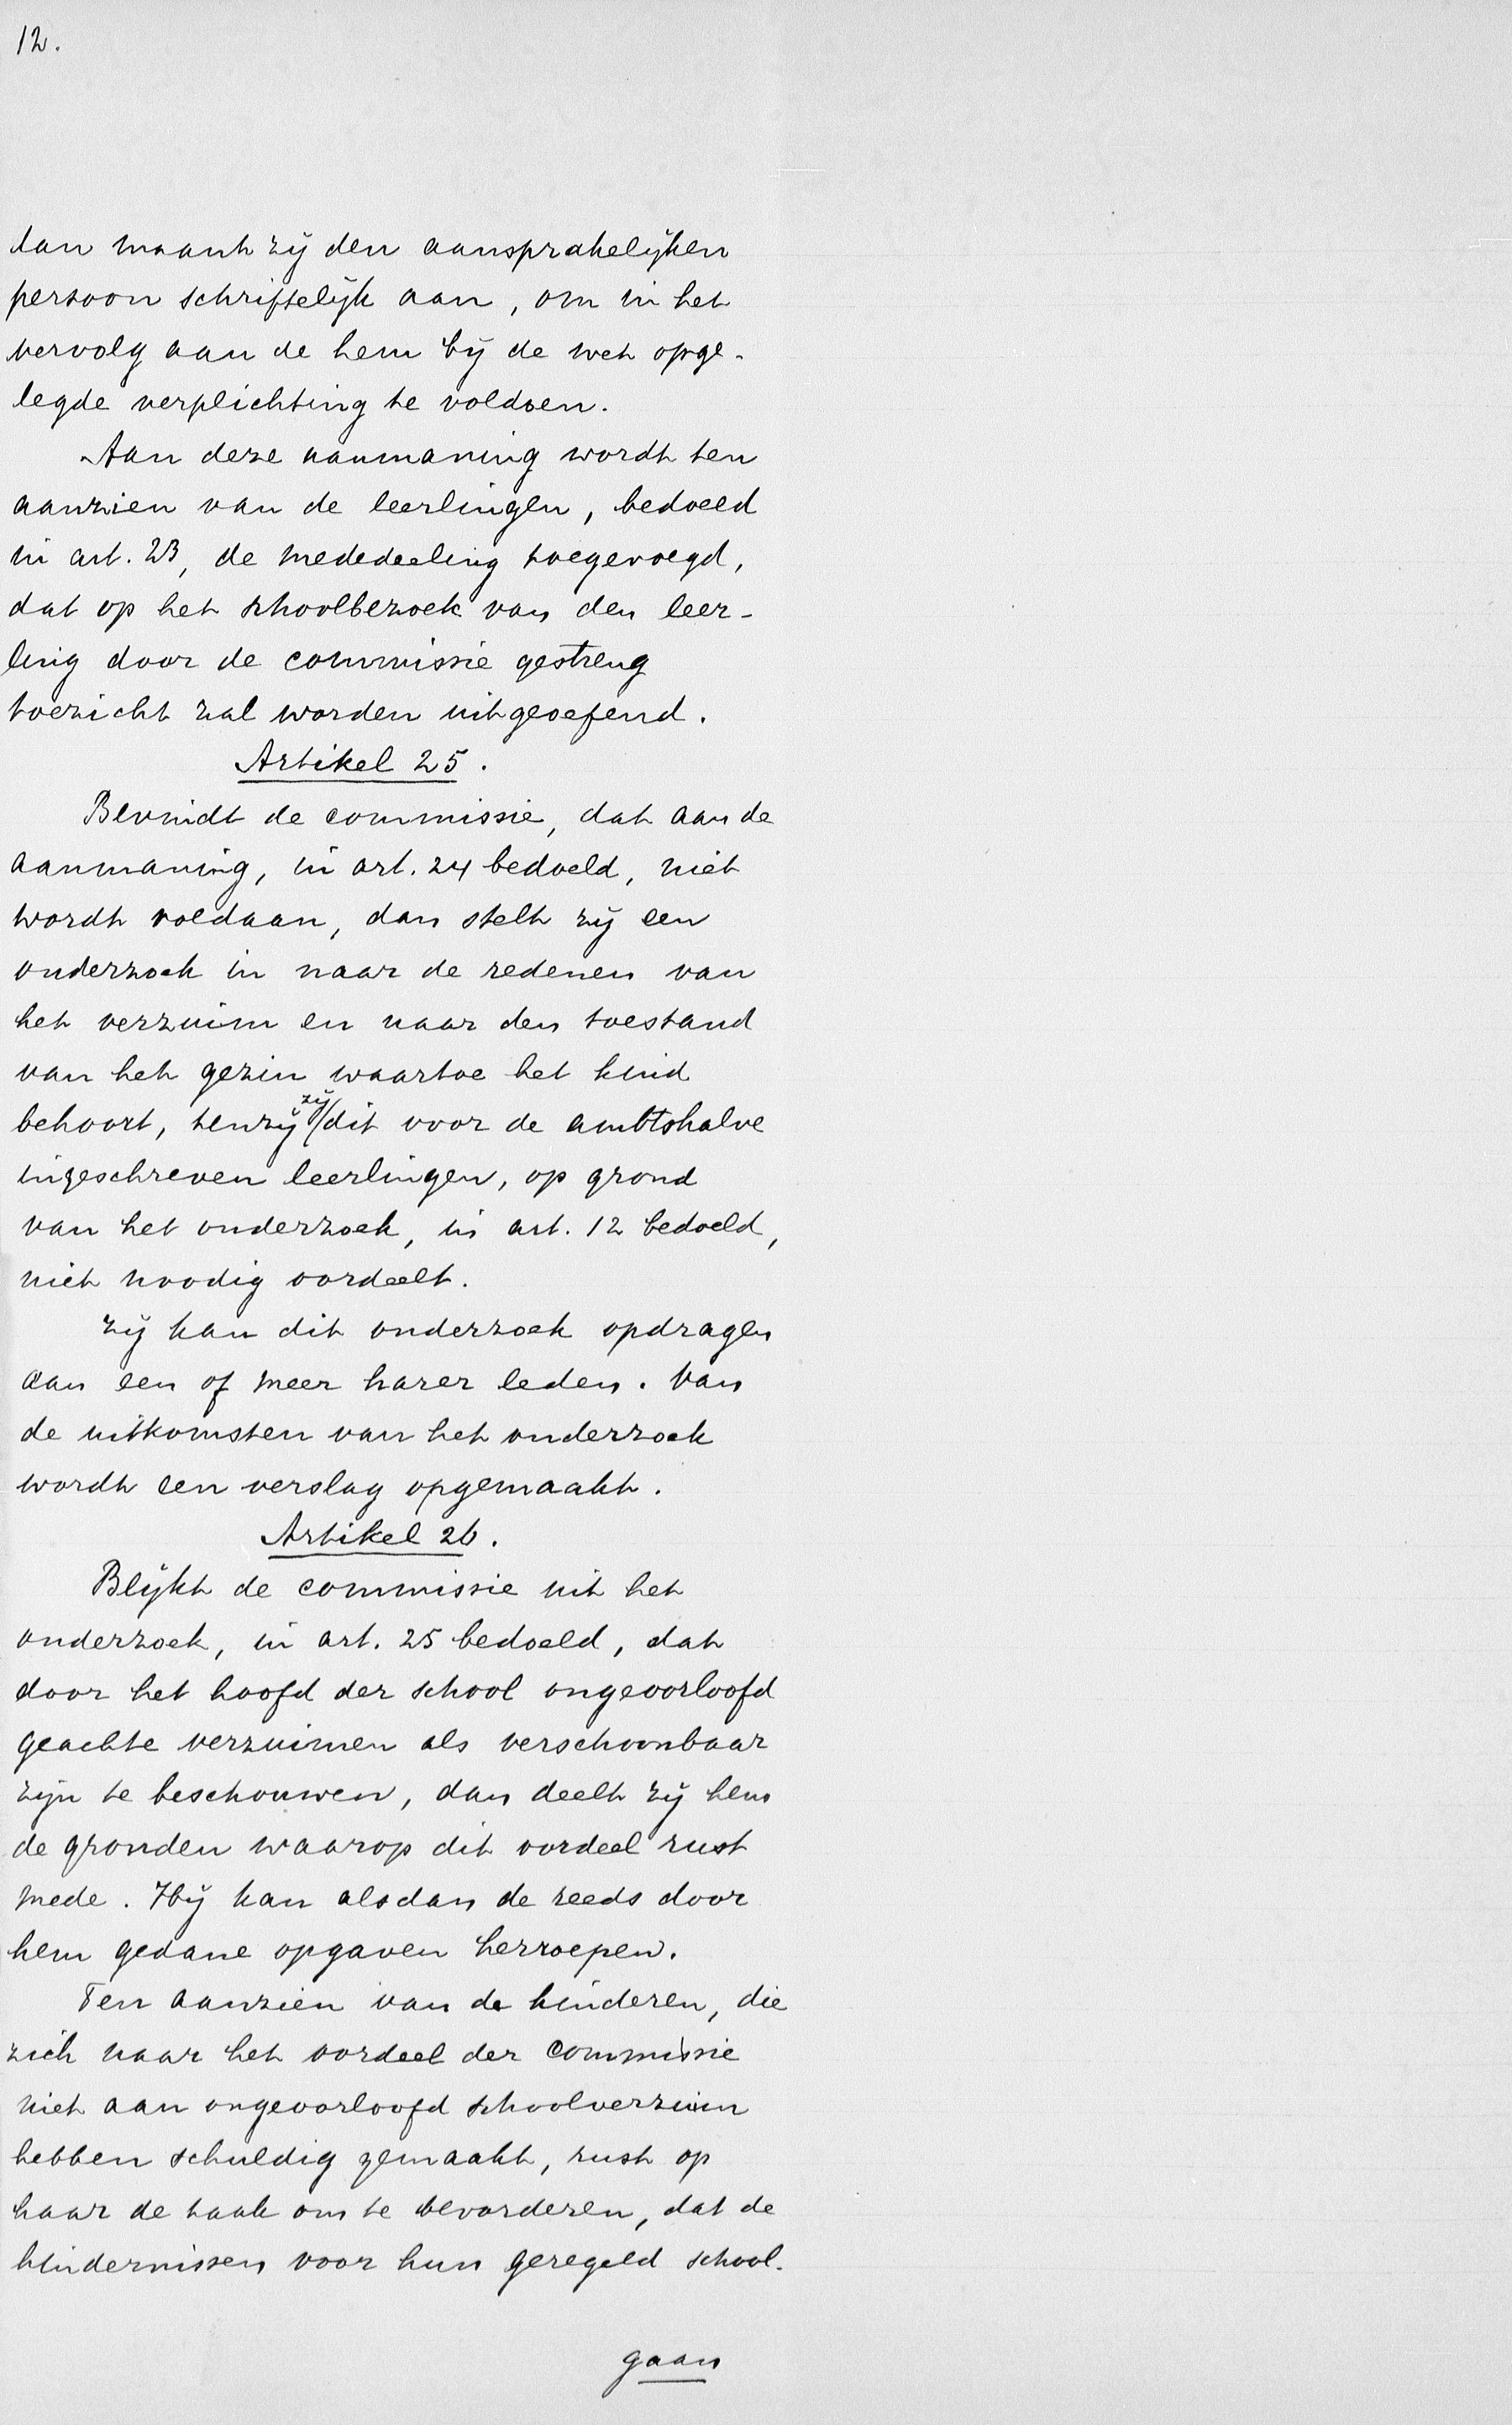 12.
dan maant zij den aansprakelijken
persoon schriftelijk aan, om in het
vervolg aan de hem bij de wet opge-
legde verplichting te voldoen.
Aan deze aanmaning wordt ten
aanzien van de leerlingen, bedoeld
in art. 23, de mededeeling toegevoegd,
dat op het schoolbezoek van den leer-
ling door de commissie gestreng
toezicht zal worden uitgeoefend.
Artikel 25.
Bevindt de commissie, dat aan de
aanmaning, in art. 24 bedoeld, niet
wordt voldaan, dan stelt zij een
onderzoek in naar de redenen van
het verzuim en naar den toestand
van het gezin waartoe het kind
behoort, tenzij zij dit voor de ambtshalve
ingeschreven leerlingen, op grond
van het onderzoek, in art. 12 bedoeld,
niet noodig oordeelt.
Zij kan dit onderzoek opdragen
aan een of meer harer leden. Van
de uitkomsten van het onderzoek
wordt een verslag opgemaakt.
Artikel 26.
Blijkt de commissie uit het
onderzoek, in art. 25 bedoeld, dat
door het hoofd der school ongeoorloofd
geachte verzuimen als verschoonbaar
zijn te beschouwen, dan deelt zij hem
de gronden waarop dit oordeel rust
mede. Hij kan alsdan de reeds door
hem gedane opgaven herroepen.
Ten aanzien van de kinderen, die
zich naar het oordeel der commissie
niet aan ongeoorloofd schoolverzuim
hebben schuldig gemaakt, rust op
haar de taak om te bevorderen, dat de
hindernissen voor hun geregeld school-
gaan